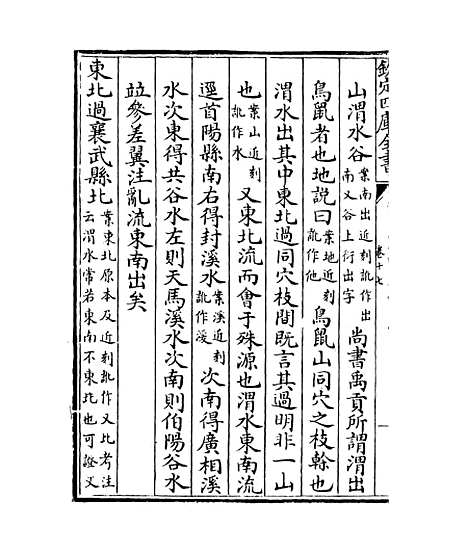 欽定四庫全書
卷十七
山渭水谷案南出近刻訛作出南又谷上衍出字尚書禹貢所謂渭出
鳥鼠者也地說曰案地近刻訛作他鳥鼠山同穴之枝榦也
渭水出其中東北過同穴枝間既言其過明非一山
也案山近刻訛作水又東北流而會于殊源也渭水東南流
逕首陽縣南右得封溪水案溪近刻訛作溪次南得廣相溪
水次東得共谷水左則天馬溪水次南則伯陽谷水
竝參差翼注亂流東南出矣
東北過襄武縣北案東北原本及近刻訛作又北考注云渭水常若東南不東北也可證又